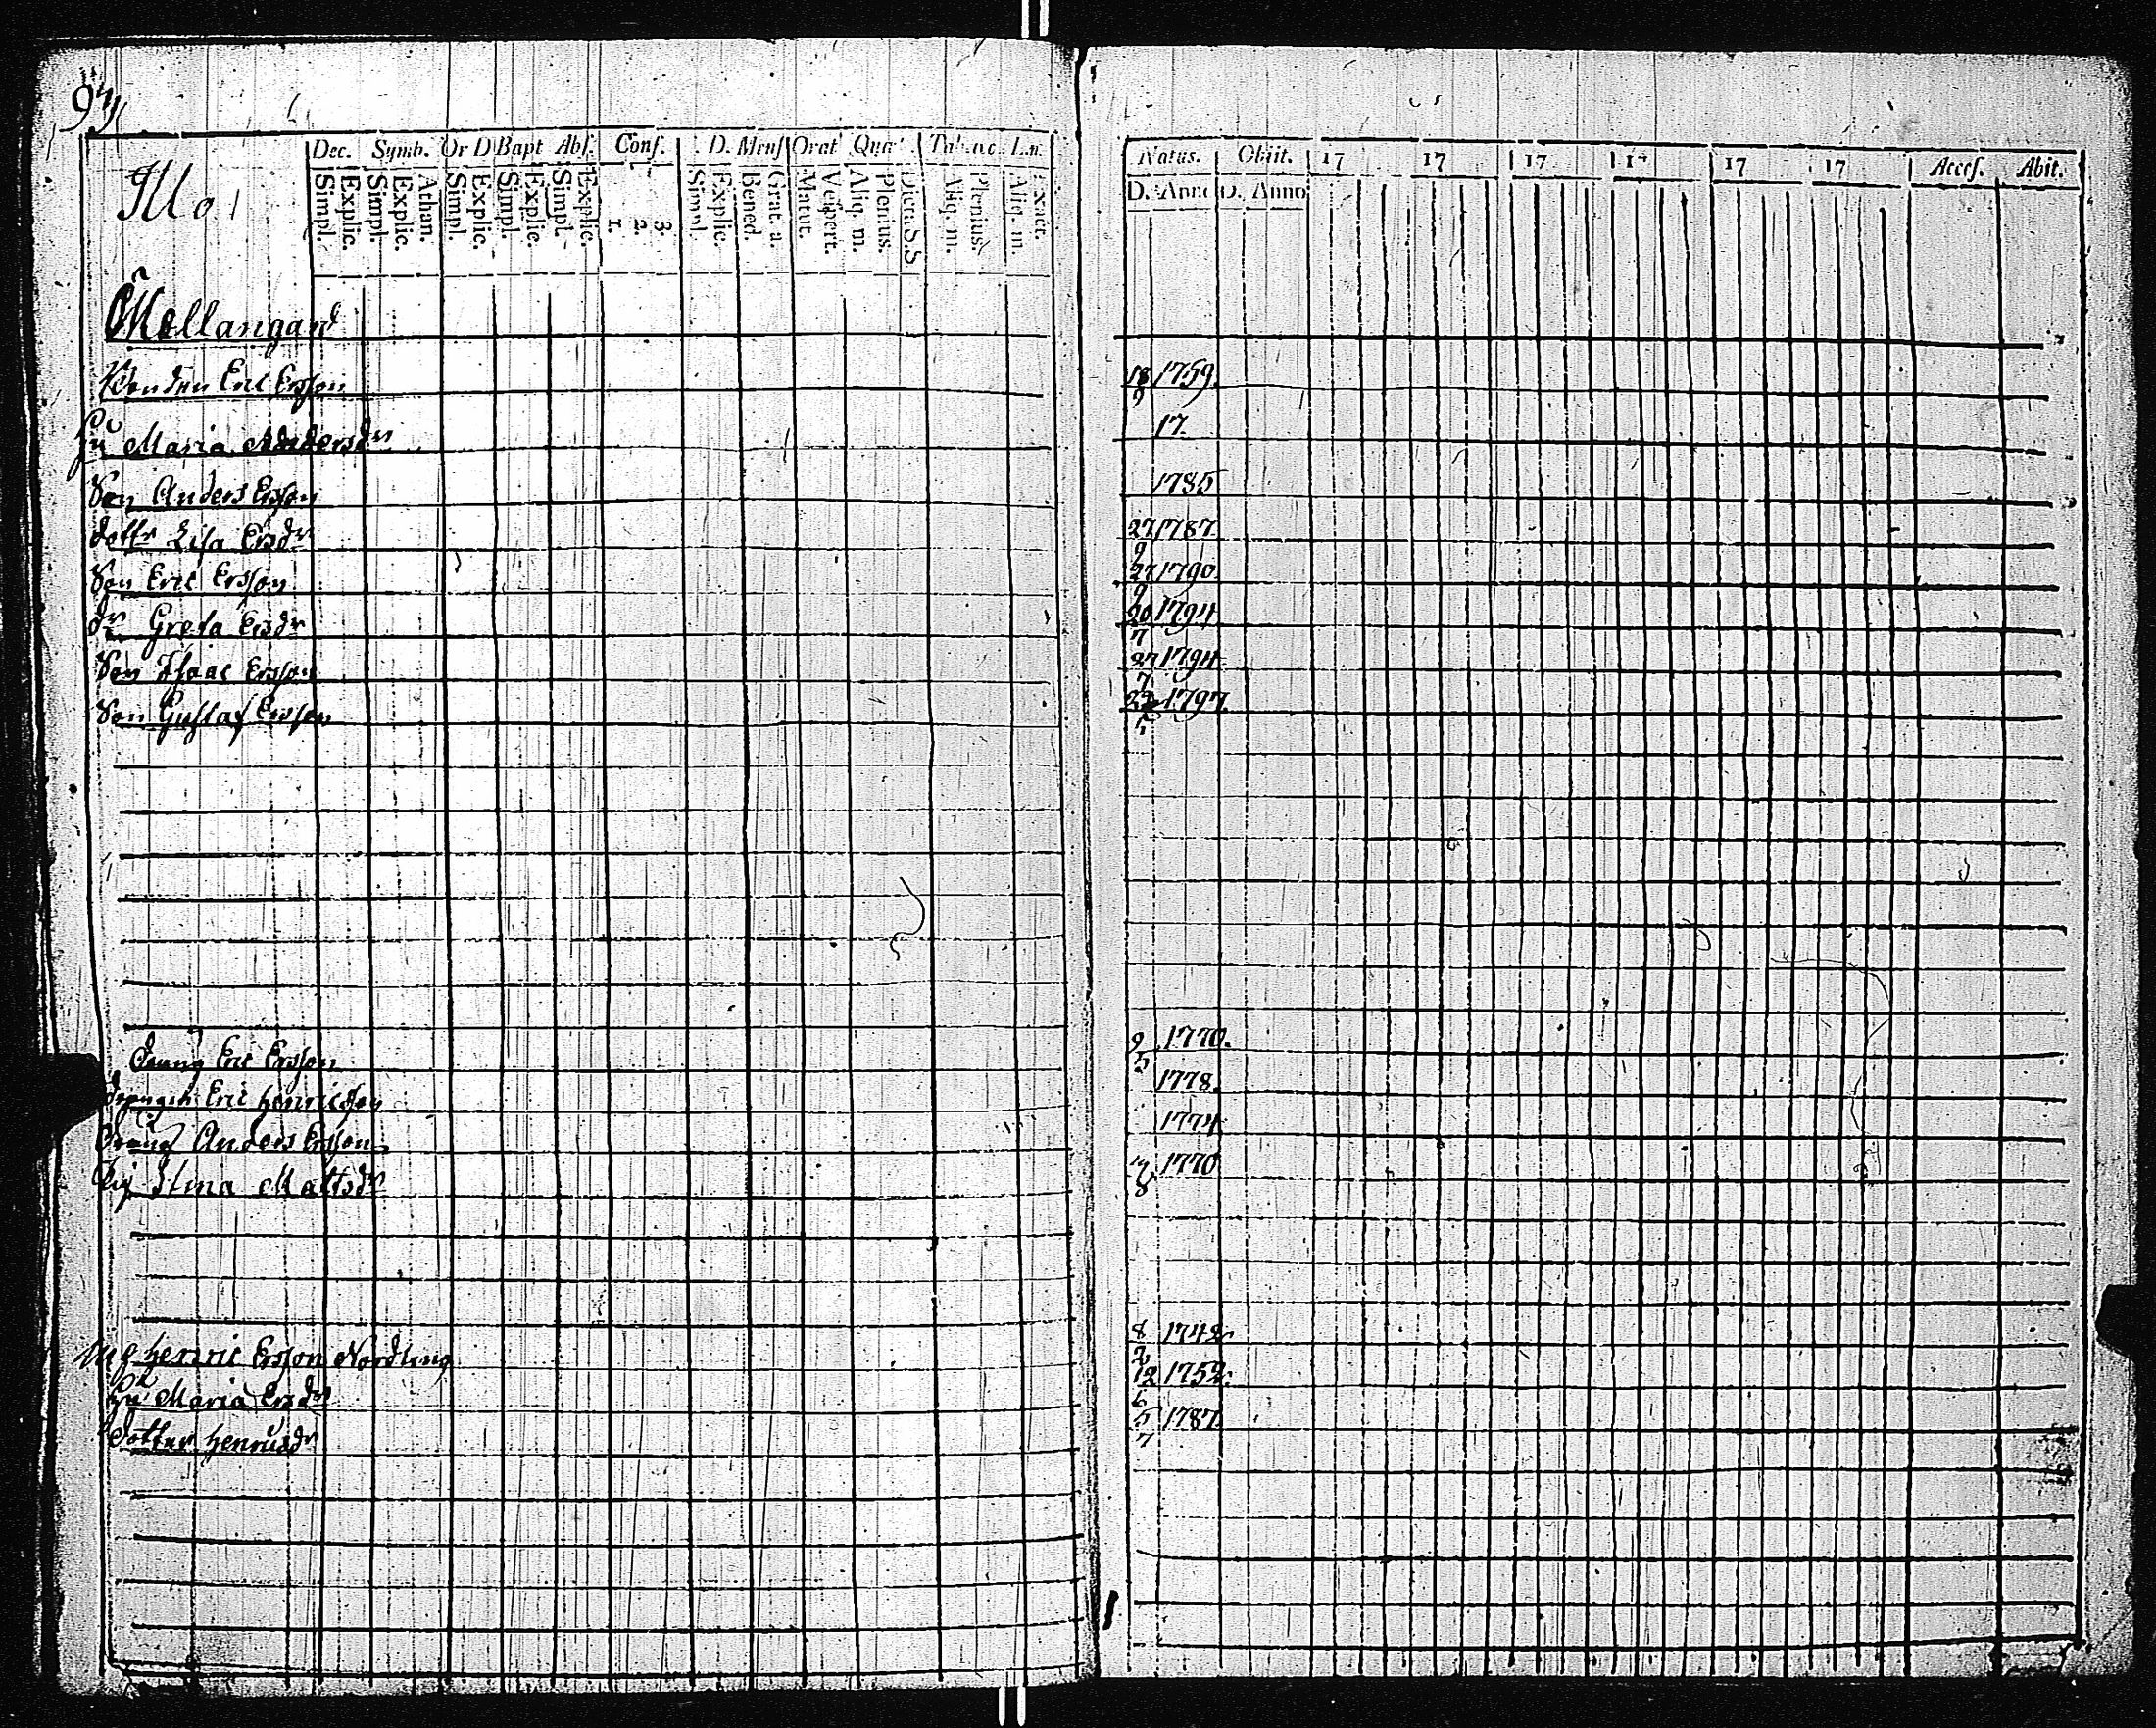 Dec. Symb. Or D Bapt Abs. Conf. D. Mens Orat Quæ
Simpl. Explic. Simpl. Explic. Athan. Simpl. Explic. Simpl. Explic. Simpl. Explic. 1. 2. 3. Simpl. Explic. Bened. Grat. a. Matut. Vespert. Aliq. m. Plenius. Dicta S.S Aliq. m. Plenius. Aliq. m. Exact.
Natus. Obiit. 17 17 17 17 17 17 Access. Abit.
D. Anno D. Anno
Mellangård
Bonden Eric Ersson 18/9 1759.
Hu Maria Andersdr 17
Son Anders Ersson 1785
dottr Lisa Ersdr 27/9 1787.
Son Eric Ersson 27/9 1790.
dr Greta Ersdr 20/7 1794
Son Isaac Ersson 27/7 1794
Son Gustaf Ersson 1797.
Dräng Eric Ersson 9/5 1770.
Drängen Eric Henricsson 1778.
Dräng Anders Ersson 1774
Pig Stina Mattsdr 1770
Henric Ersson Nordling 8/2 1742
Hu Maria Ersdr 12/6 1752.
Dotter Henricsdr 5/7 1787.